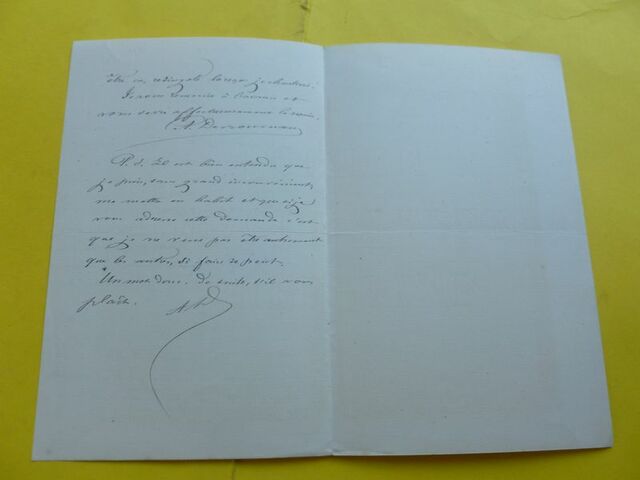 être en redingote lorsque je chanterai.
Je vous remercie à l'avance et
vous serre affectueusement la main.
A.
P. S. Il est bien entendu que
je puis, sans grand inconvénient,
me mettre en habit et que si je
vous adresse cette demande c'est
que je ne veux pas être autrement
que les autres, si faire se peut.
Un mot donc de suite, s'il vous
plaît.
A D